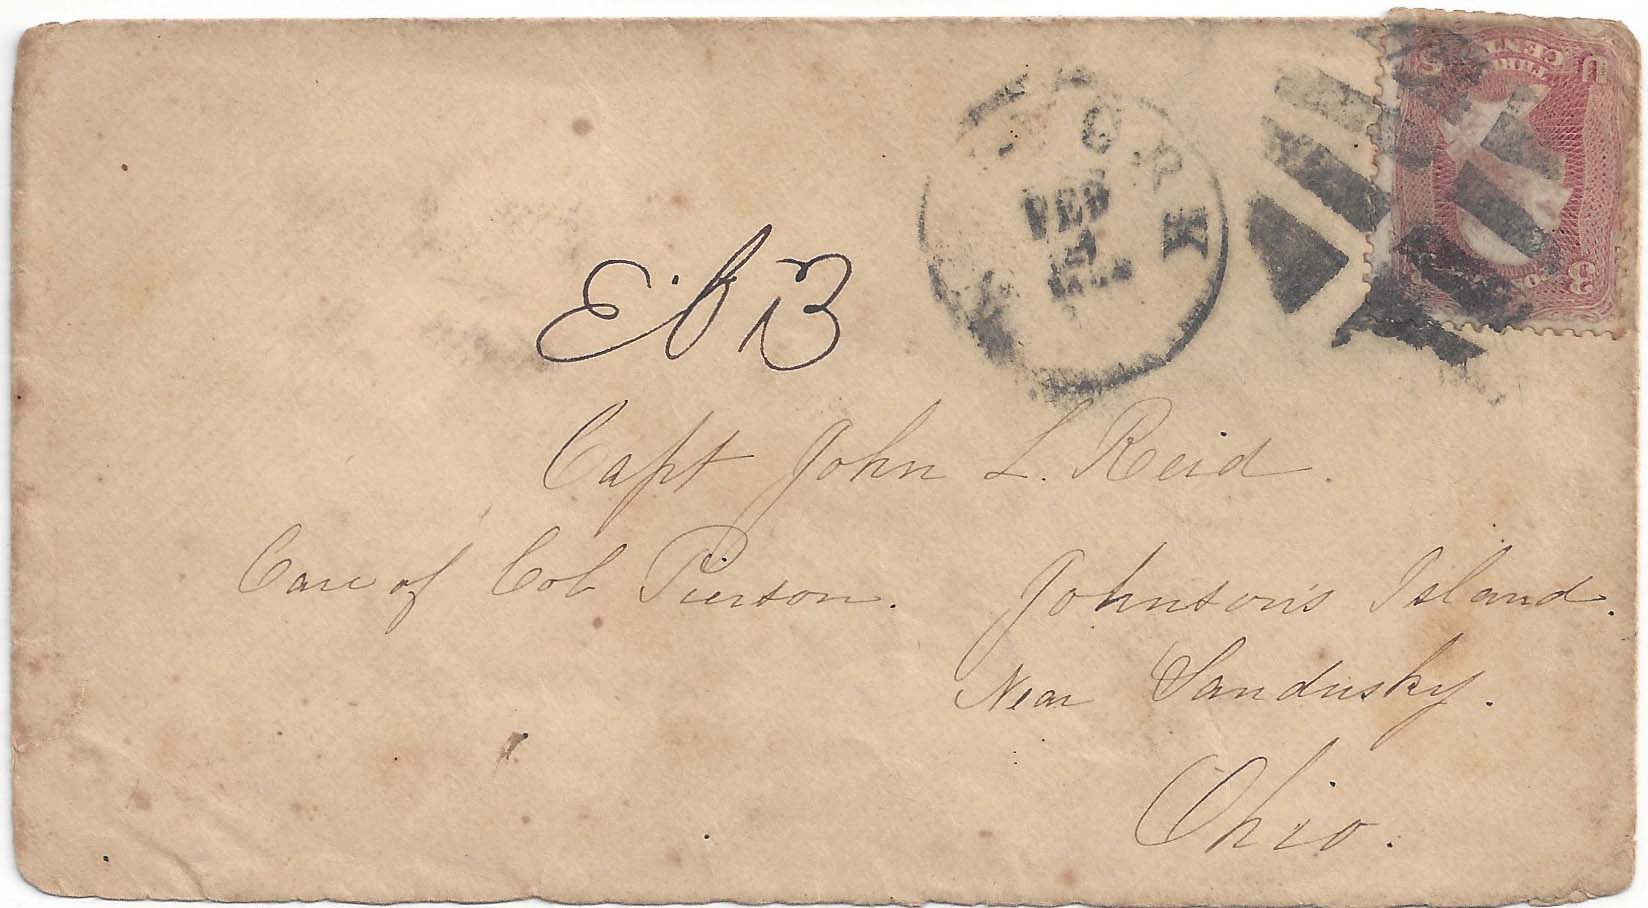 YORK
U S
THREE CENTS
3
E. B
Capt John L. Reid.
Care of Col Pierson. Johnson's Island.
Near Sandusky.
Ohio.